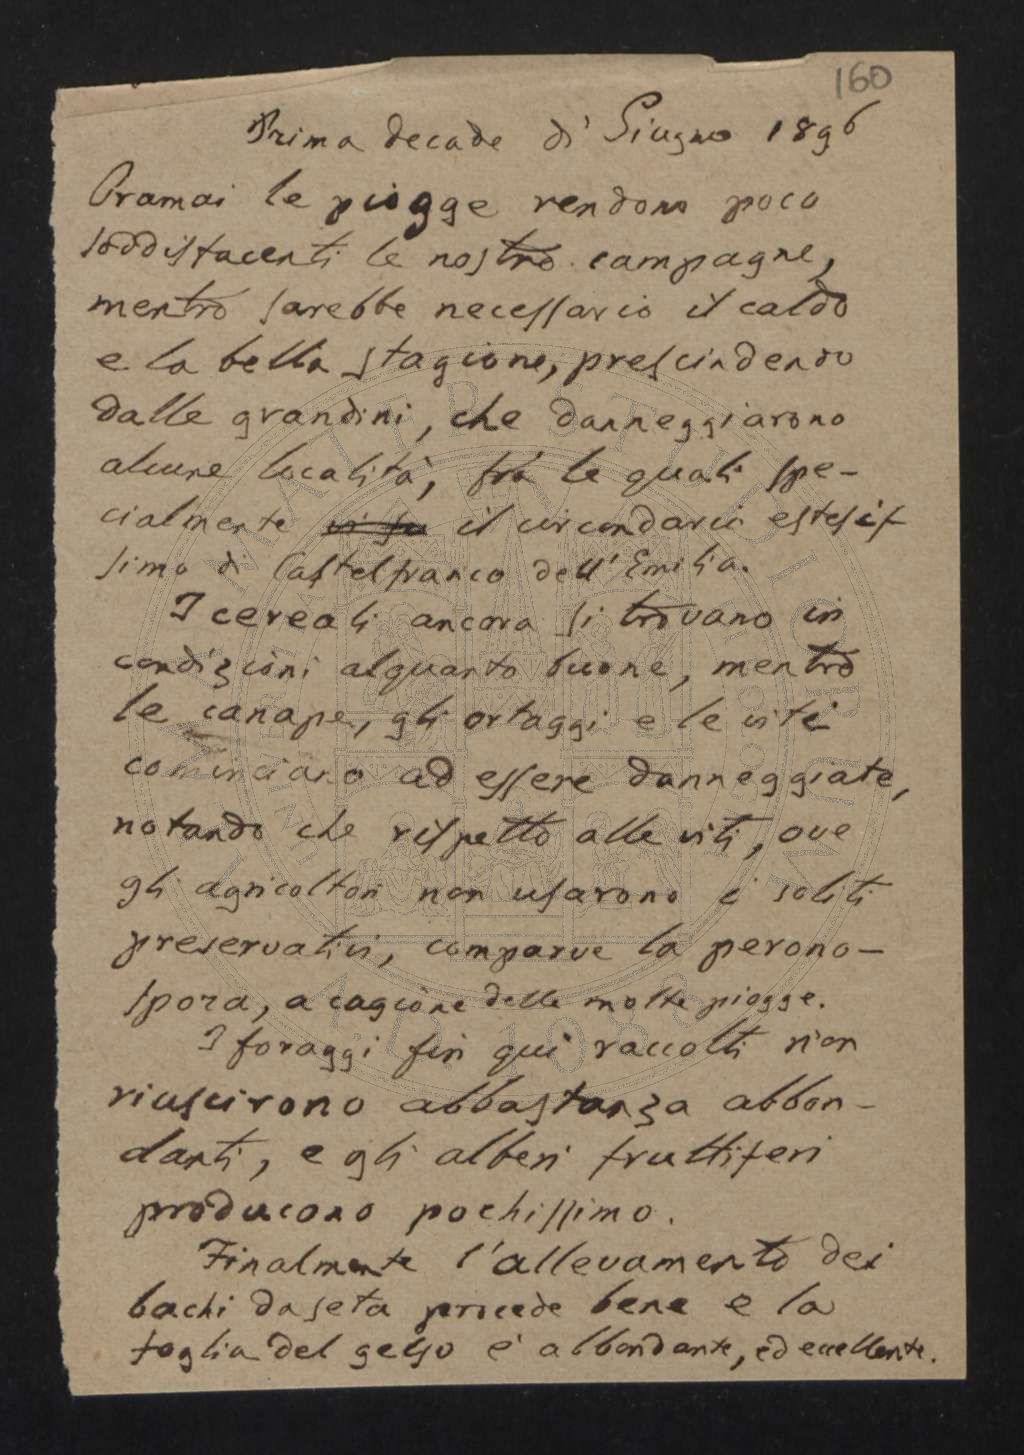 160
Prima decade di Giugno 1896
Oramai le piogge rendono poco
soddisfacenti le nostre campagne,
mentre sarebbe necessario il caldo
e la bella stagione, prescindendo
dalle grandini, che danneggiarono
alcune località, fra le quali spe-
cialmente vi fu il circondario estesis-
simo di Castelfranco dell'Emilia.
I cereali ancora si trovano in
condizioni alquanto buone, mentre
le canape, gli ortaggi e le viti
cominciano ad essere danneggiate,
notando che rispetto alle viti, ove
gli agricoltori non usarono i soliti
preservativi, comparve la perono-
spora, a cagione delle molte piogge.
I foraggi fin qui raccolti non
riuscirono abbastanza abbon-
danti, e gli alberi fruttiferi
producono pochissimo.
Finalmente l'allevamento dei
bachi da seta procede bene e la
foglia del gelso è abbondante, ed eccellente.
ALMA MATER STUDIORUM
A.D. 1088